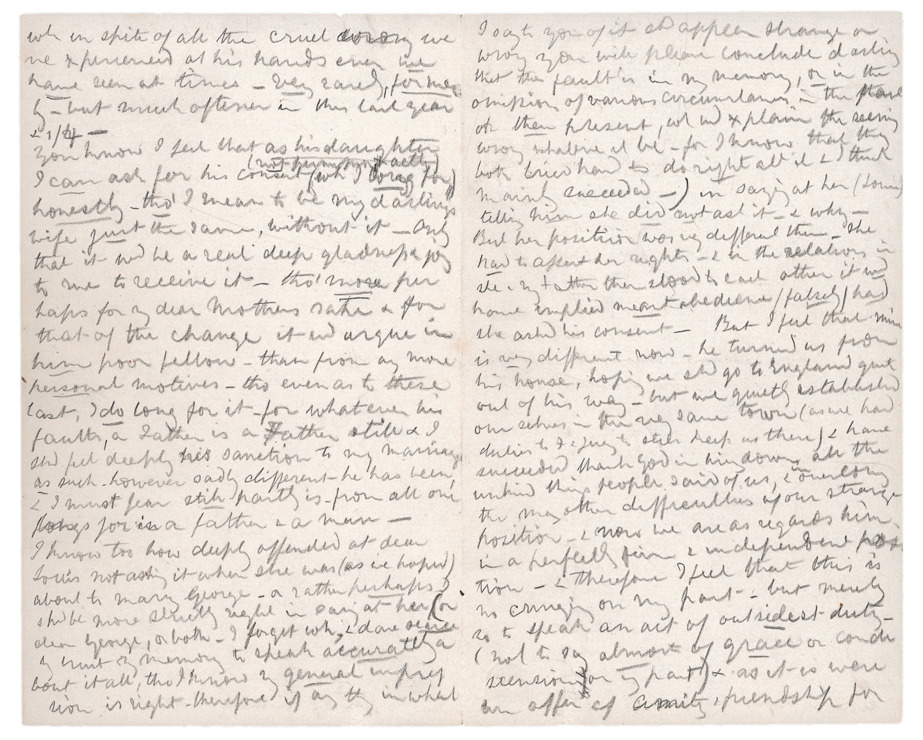 wh in spite of all the cruel wrong we
've experienced at his hands even we
have seen at times - very rarely, former
ly - but much oftener in this last year
& 1/4 -
You know I feel that as his daughter
(not permission exactly)
I can ask for his consent (wh I long for)
honestly - tho' I mean to be my darling's
wife just the same, without it - only
that it wd be a real deep gladness & joy
to me to receive it - tho' more per
haps for my dear Mothers sake & for
that of the change it wd argue in
him poor fellow - than from any more
personal motives - tho even as to these
last, I do long for it - for whatever his
faults, a Father is a Father still & I
shd feel deeply his sanction to my marriage
as such - however sadly different he has been,
& I must fear still partly is - from all one
longs for in a father & a man -
I know too how deeply offended at dear
Loui's not asking it when she was (as we hoped)
about to marry George - or rather perhaps I
shd be more strictly right in saying at her (or
dear George, or both - I forget wh, & dare
my memory to speak accurately a
bout it all, tho I know my general impres
sion is right - therefore if any thing in what
I say to you of it shd appear strange or
wrong you will please conclude darling
that the fault is in my memory, or in the
omission of various circumstances in the
then present, wh wd explain the seeming
wrong whatever it be - for I know that they
both tried hard to do right all it & I think
mainly succeeded -) in saying at her (Loui's)
telling him she did not ask it - & why -
But her position was very different then - She
had to assert her rights - & in the relation in
she & Father then stood to each other it wd
have implied meant obedience (falsely) had
she asked his consent - But I feel that mine
is very different now - he turned us from
his house, hoping we shd go to England quite
out of his way - but we quietly established
ourselves in the very same town (as we had
duties to keep us there) & have
succeeded thank God in living down all the
unkind things people said of us, & in overcoming
the many other difficulties of our strange
position - & now we are as regards him,
in a perfectly firm & independent posi
tion - & therefore I feel that this is
no cringing on my part - but merely
so to speak an act of outsidest duty -
(not to say almost of grace or conde
scension on my part) & as it were
an offer of amity, & friendship for